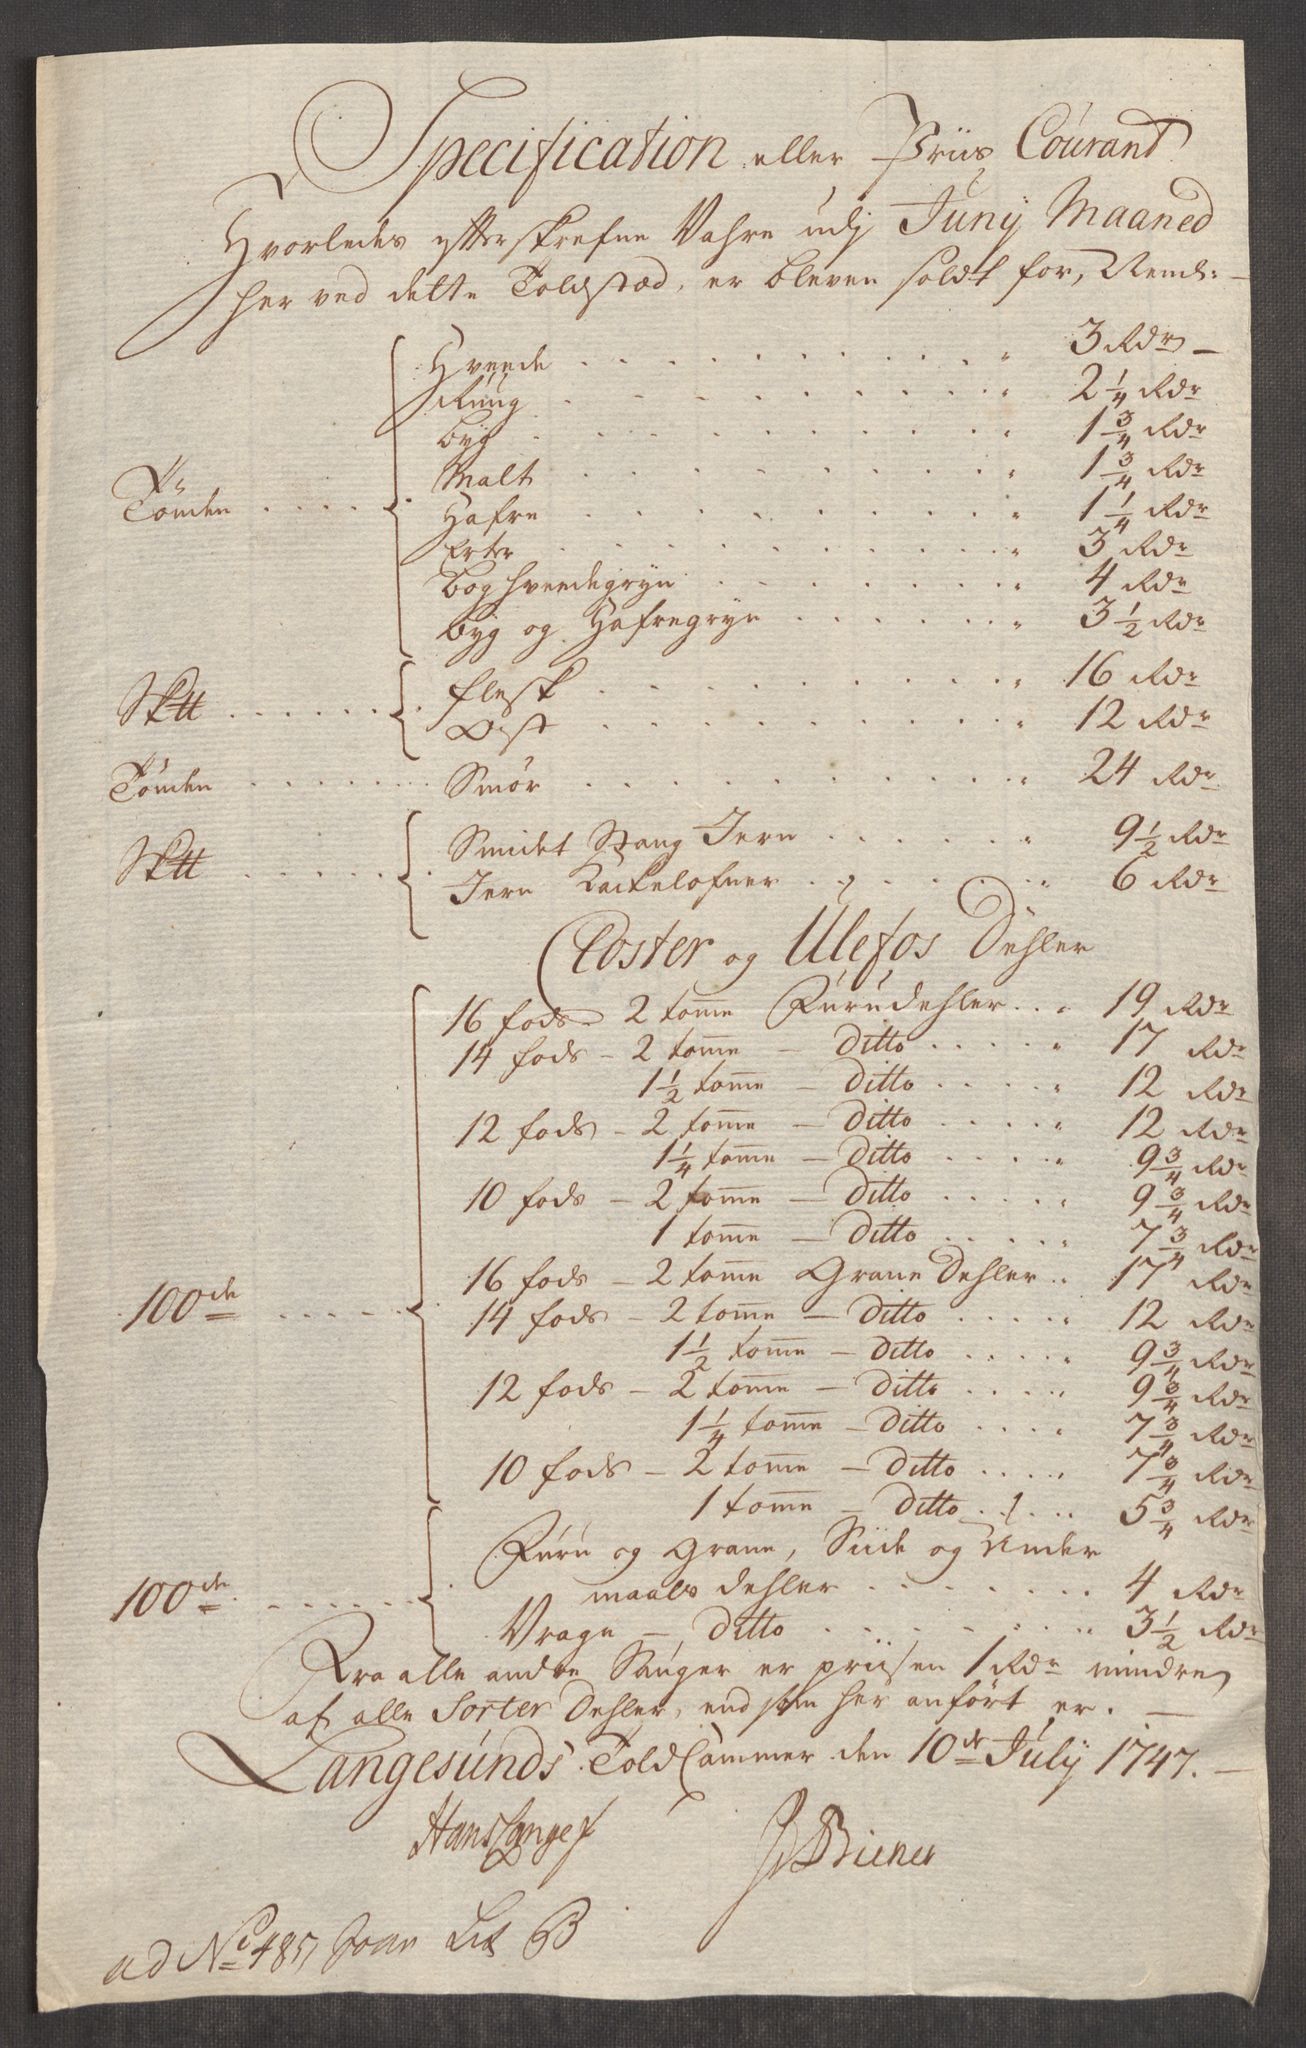 Specification eller Priis Courant
Hvorledes efterskrefne Vahre udj Junij Maaned
her ved dette Toldstæd, er bleven soldt for, Neml:
Hveede 3 Rdr
Ruug 2 1/4 Rdr
Byg 1 3/4 Rdr
Malt 1 3/4 Rdr
Tønden Hafre 1 1/4 Rdr
Erter 3 Rdr
Boghveedegryn 4 Rdr
Byg og Hafregryn 3 1/2 Rdr
Sk℔ Flesk 16 Rdr
Ost 12 Rdr
Tønden Smør 24 Rdr
Sk℔ Smidet Stang Jern 9 1/2 Rdr
Jern Kackelofner 6 Rdr
Closter og Ulefos Dehler
16 fods 2 tom̄e Furudehler 19 Rdr
14 fods - 2 tom̄e - Ditto 17 Rdr
1 1/2 tom̄e - Ditto 12 Rdr
12 fods - 2 tom̄e - Ditto 12 Rdr
1 1/4 tom̄e - Ditto 9 3/4 Rdr
10 fods - 2 tom̄e - Ditto 9 3/4 Rdr
1 tom̄e - Ditto 7 3/4 Rdr
16 fods - 2 tom̄e Grane Dehler 17 Rdr
100de 14 fods - 2 tom̄e - Ditto 12 Rdr
1 1/2 tom̄e - Ditto 9 3/4 Rdr
12 fods - 2 tom̄e - Ditto 9 3/4 Rdr
1 1/4 tom̄e - Ditto 7 3/4 Rdr
10 fods - 2 tom̄e - Ditto 7 3/4 Rdr
1 tom̄e - Ditto 5 3/4 Rdr
Furu og Grane, Siide og Under
100de maals dehler 4 Rdr
Vrage - Ditto 3 1/2 Rdr
Fra alle andre Sauger er priisen 1 Rdr mindre
af alle Sorter Dehler, end som her anført er.
Langesunds Told Cammer den 10de July 1747.
Hans Lange
Biener
ad No 485 Lit B